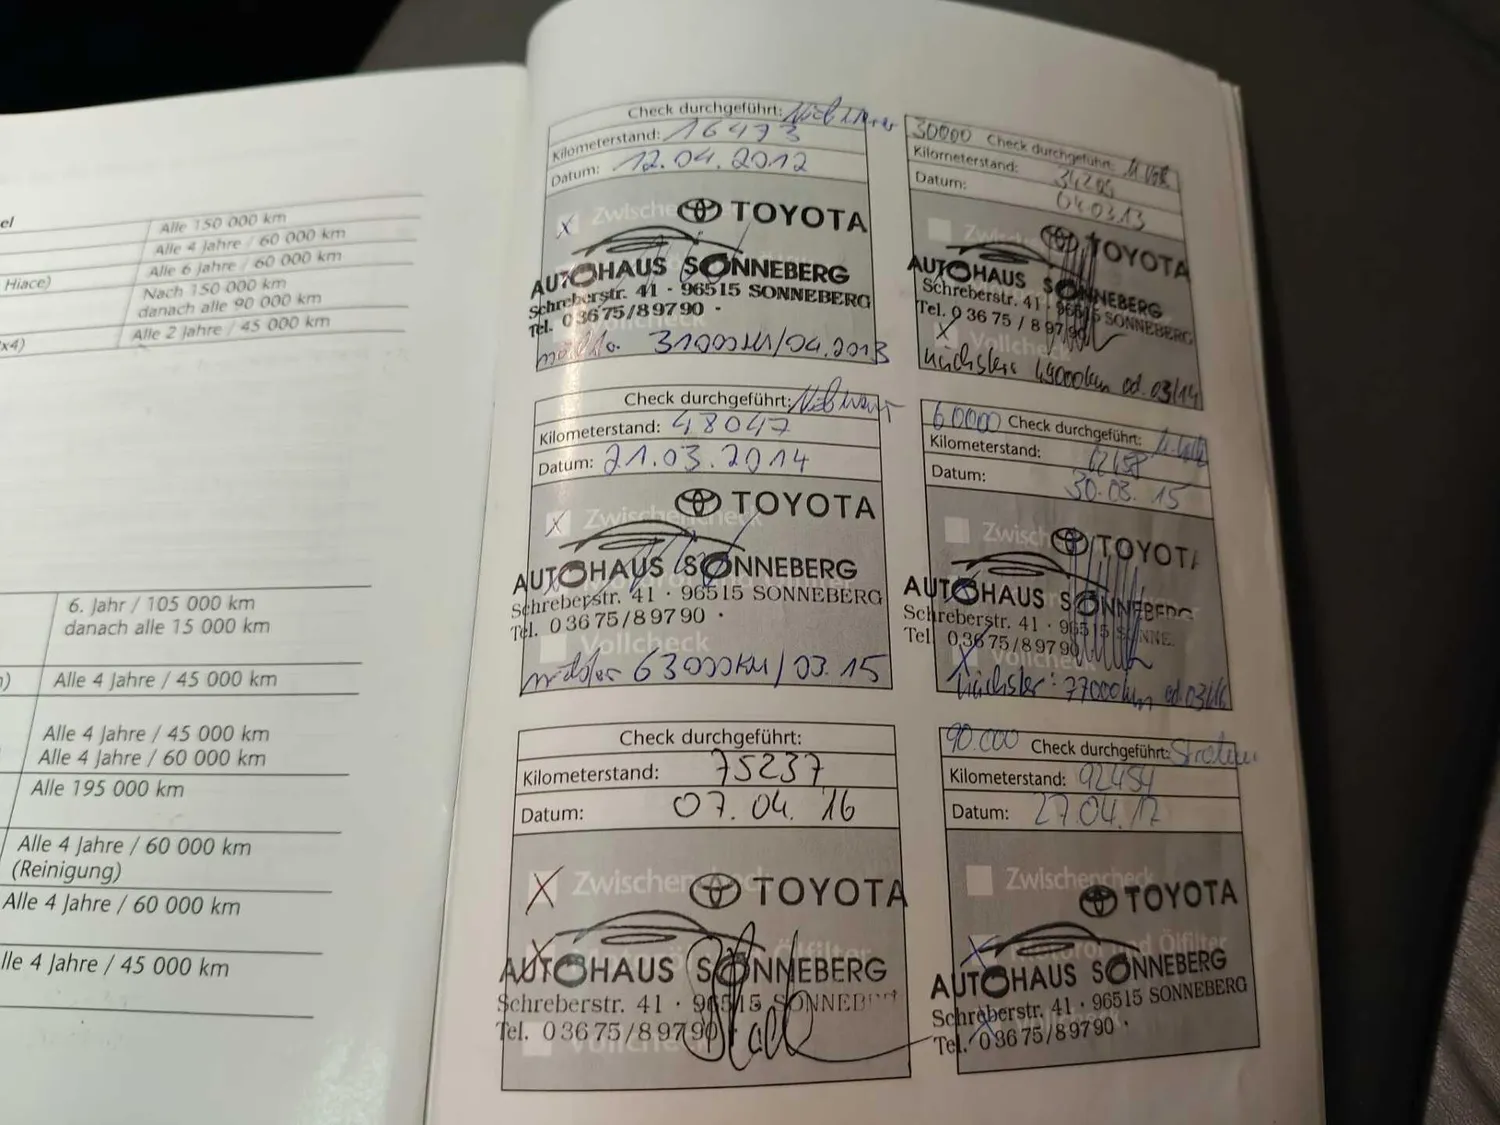 el
Alle 150 000 km
Alle 4 Jahre / 60 000 km
Hiace)
Alle 6 Jahre / 60 000 km
Nach 150 000 km
danach alle 90 000 km
x4)
Alle 2 Jahre / 45 000 km
6. Jahr / 105 000 km
danach alle 15 000 km
Alle 4 Jahre / 45 000 km
Alle 4 Jahre / 45 000 km
Alle 4 Jahre / 60 000 km
Alle 195 000 km
Alle 4 Jahre / 60 000 km
(Reinigung)
Alle 4 Jahre / 60 000 km
lle 4 Jahre / 45 000 km
Check durchgeführt:
Kilometerstand: 16473
Datum: 12.04.2012
x Zwische
TOYOTA
AUTOHAUS SONNEBERG
Schreberstr. 41 · 96515 SONNEBERG
Tel. 03675/89790 ·
Vollcheck
31000KM/04.2013
30000 Check durchgeführt:
Kilometerstand:
Datum: 04.03.13
TOYOTA
AUTOHAUS SONNEBERG
Schreberstr. 41 · 96515 SONNEBERG
Tel. 03675/89790
x Vollcheck
nächster 49000km od. 03/14
Check durchgeführt:
Kilometerstand: 48047
Datum: 21.03.2014
x Zwischencheck
TOYOTA
AUTOHAUS SONNEBERG
Schreberstr. 41 · 96515 SONNEBERG
Tel. 03675/89790 ·
Vollcheck
nächster 63000KM/03.15
60000 Check durchgeführt:
Kilometerstand: 62158
Datum: 30.03.15
Zwischen
TOYOTA
AUTOHAUS SONNEBERG
Schreberstr. 41 · 96515 SONNE
Tel. 03675/89790
x Vollcheck
nächster: 77000km od. 03/16
Check durchgeführt:
Kilometerstand: 75237
Datum: 07.04.'16
x Zwischencheck
TOYOTA
x Ölfilter
AUTOHAUS SONNEBERG
Schreberstr. 41 · 96515 SONNEB
Tel. 03675/89790 ·
Vollcheck
90.000 Check durchgeführt:
Kilometerstand: 92454
Datum: 27.04.17
Zwischencheck
TOYOTA
x Motoröl und Ölfilter
AUTOHAUS SONNEBERG
Schreberstr. 41 · 96515 SONNEBERG
Tel. 03675/89790 ·
x Vollcheck